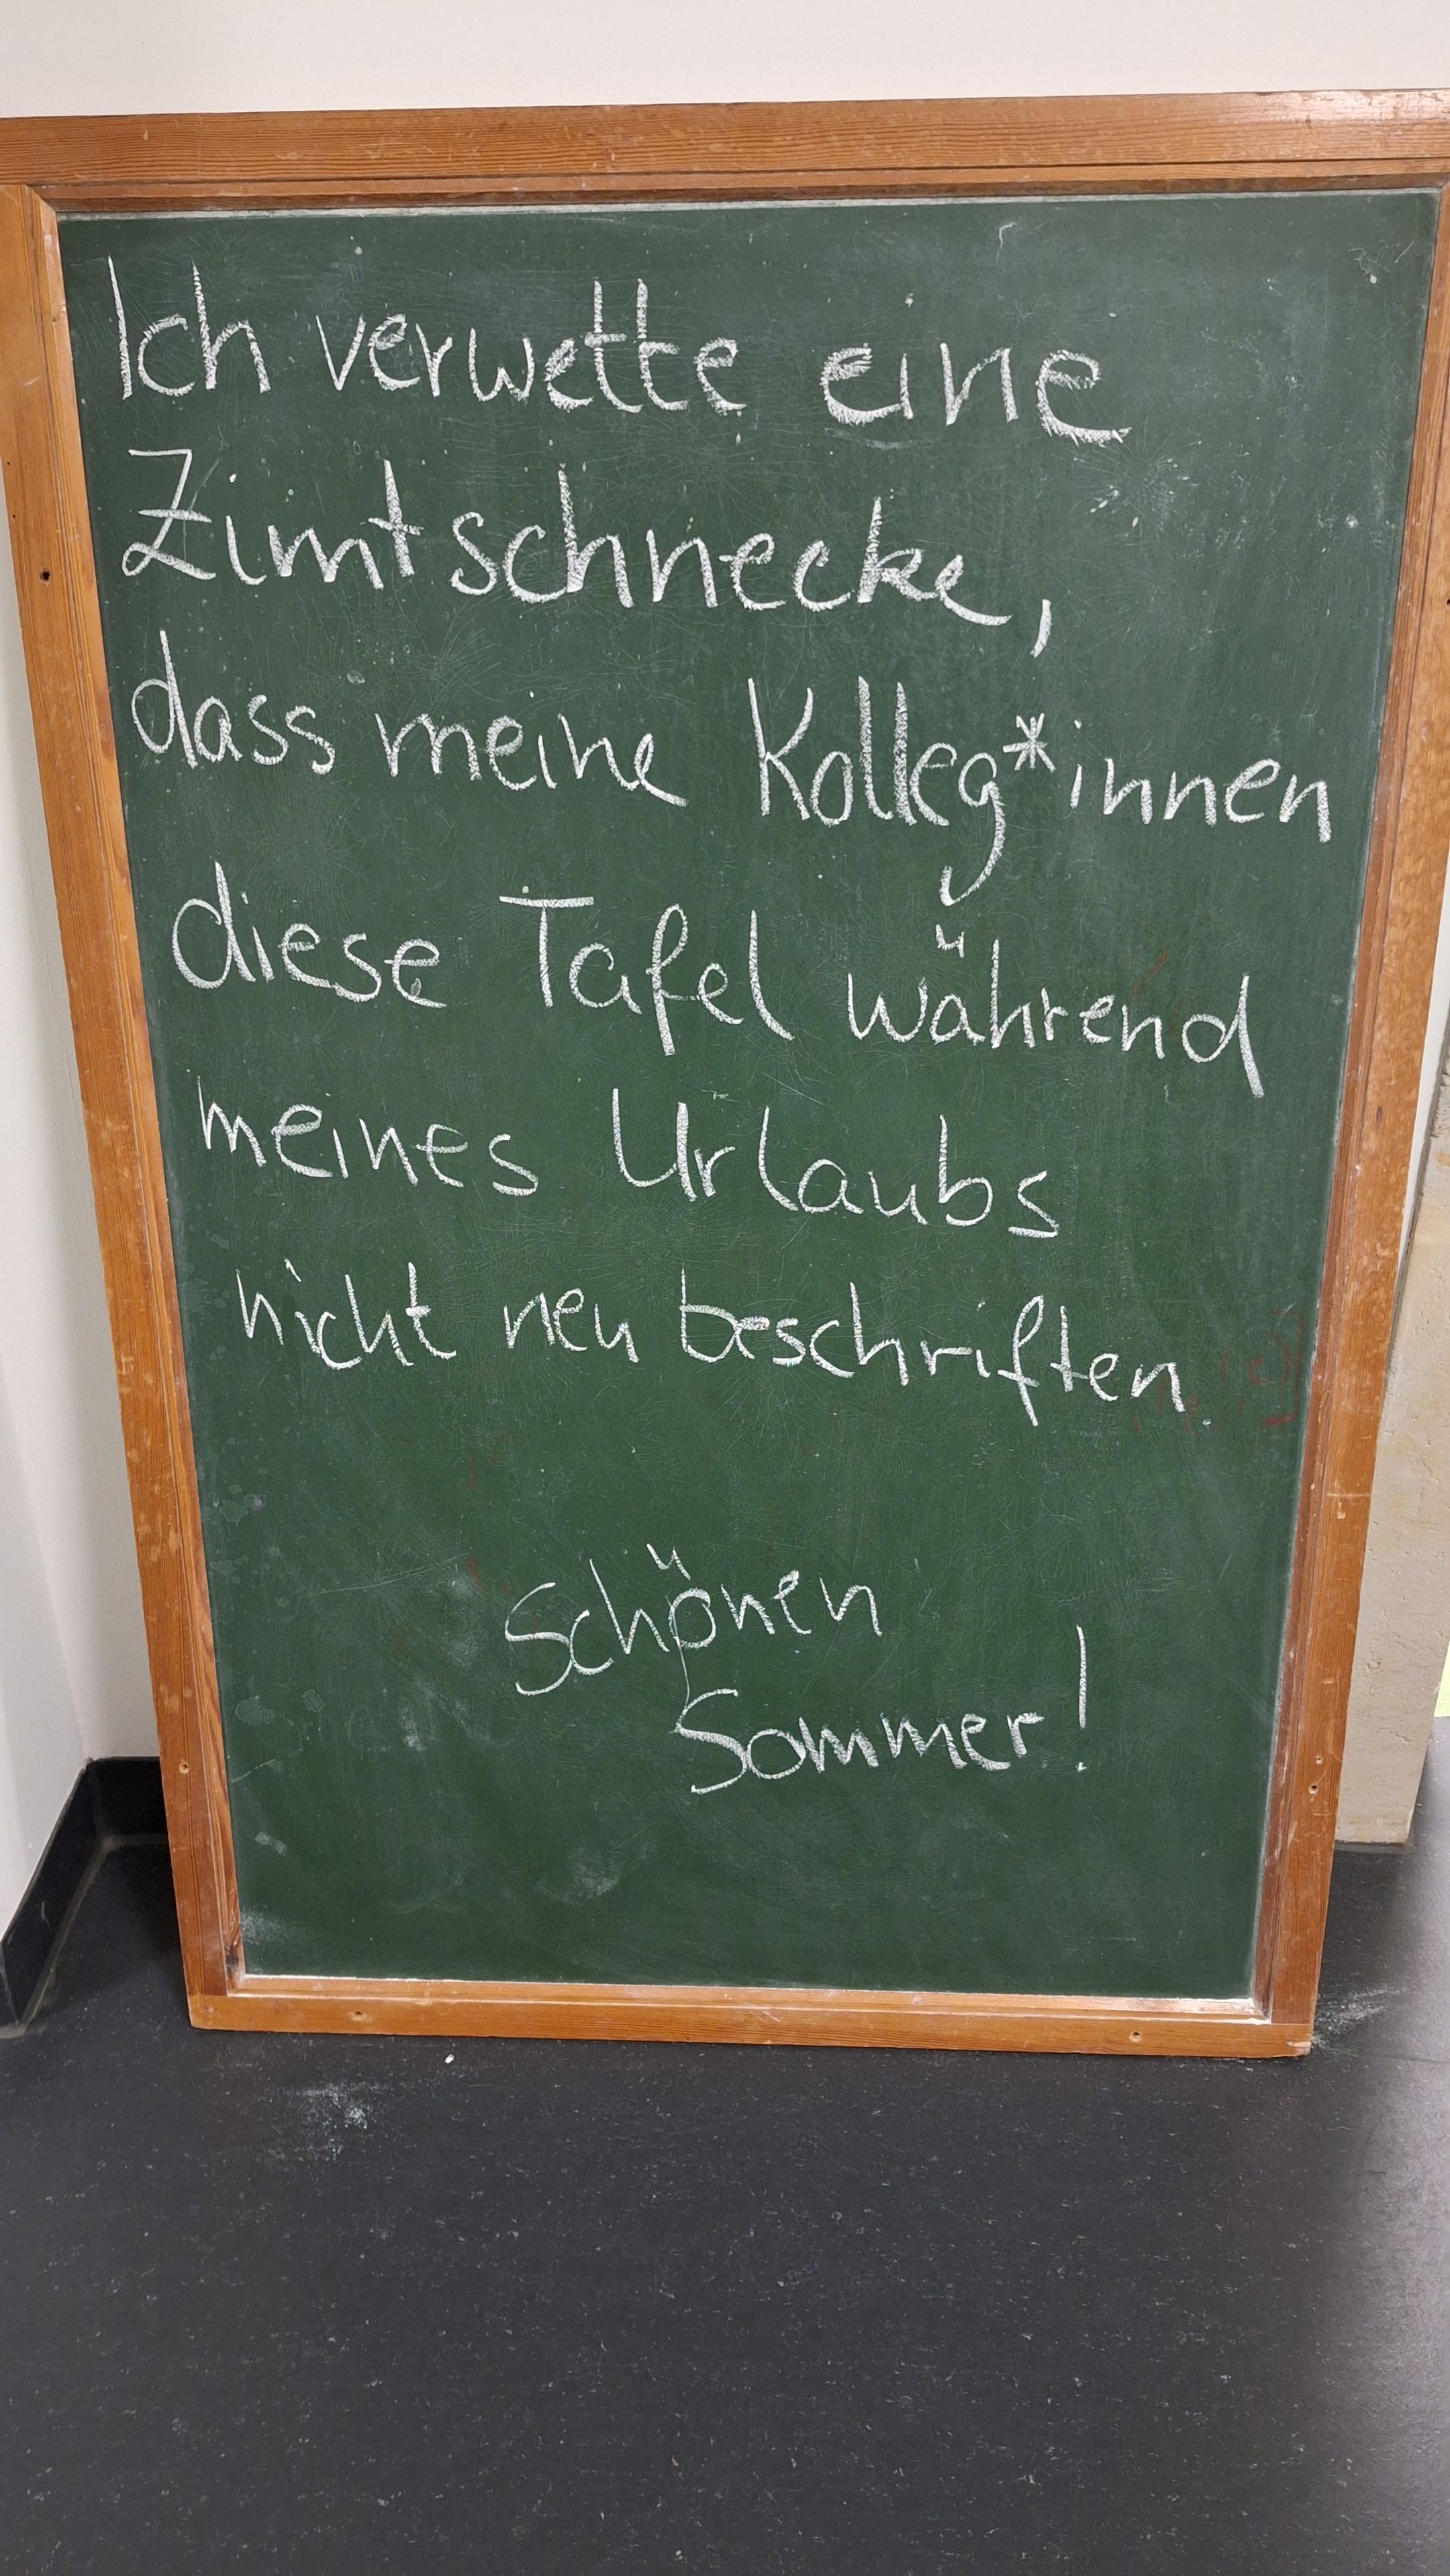 Ich verwette eine
Zimtschnecke,
dass meine Kolleg*innen
diese Tafel während
meines Urlaubs
nicht neu beschriften.
Schönen
Sommer!